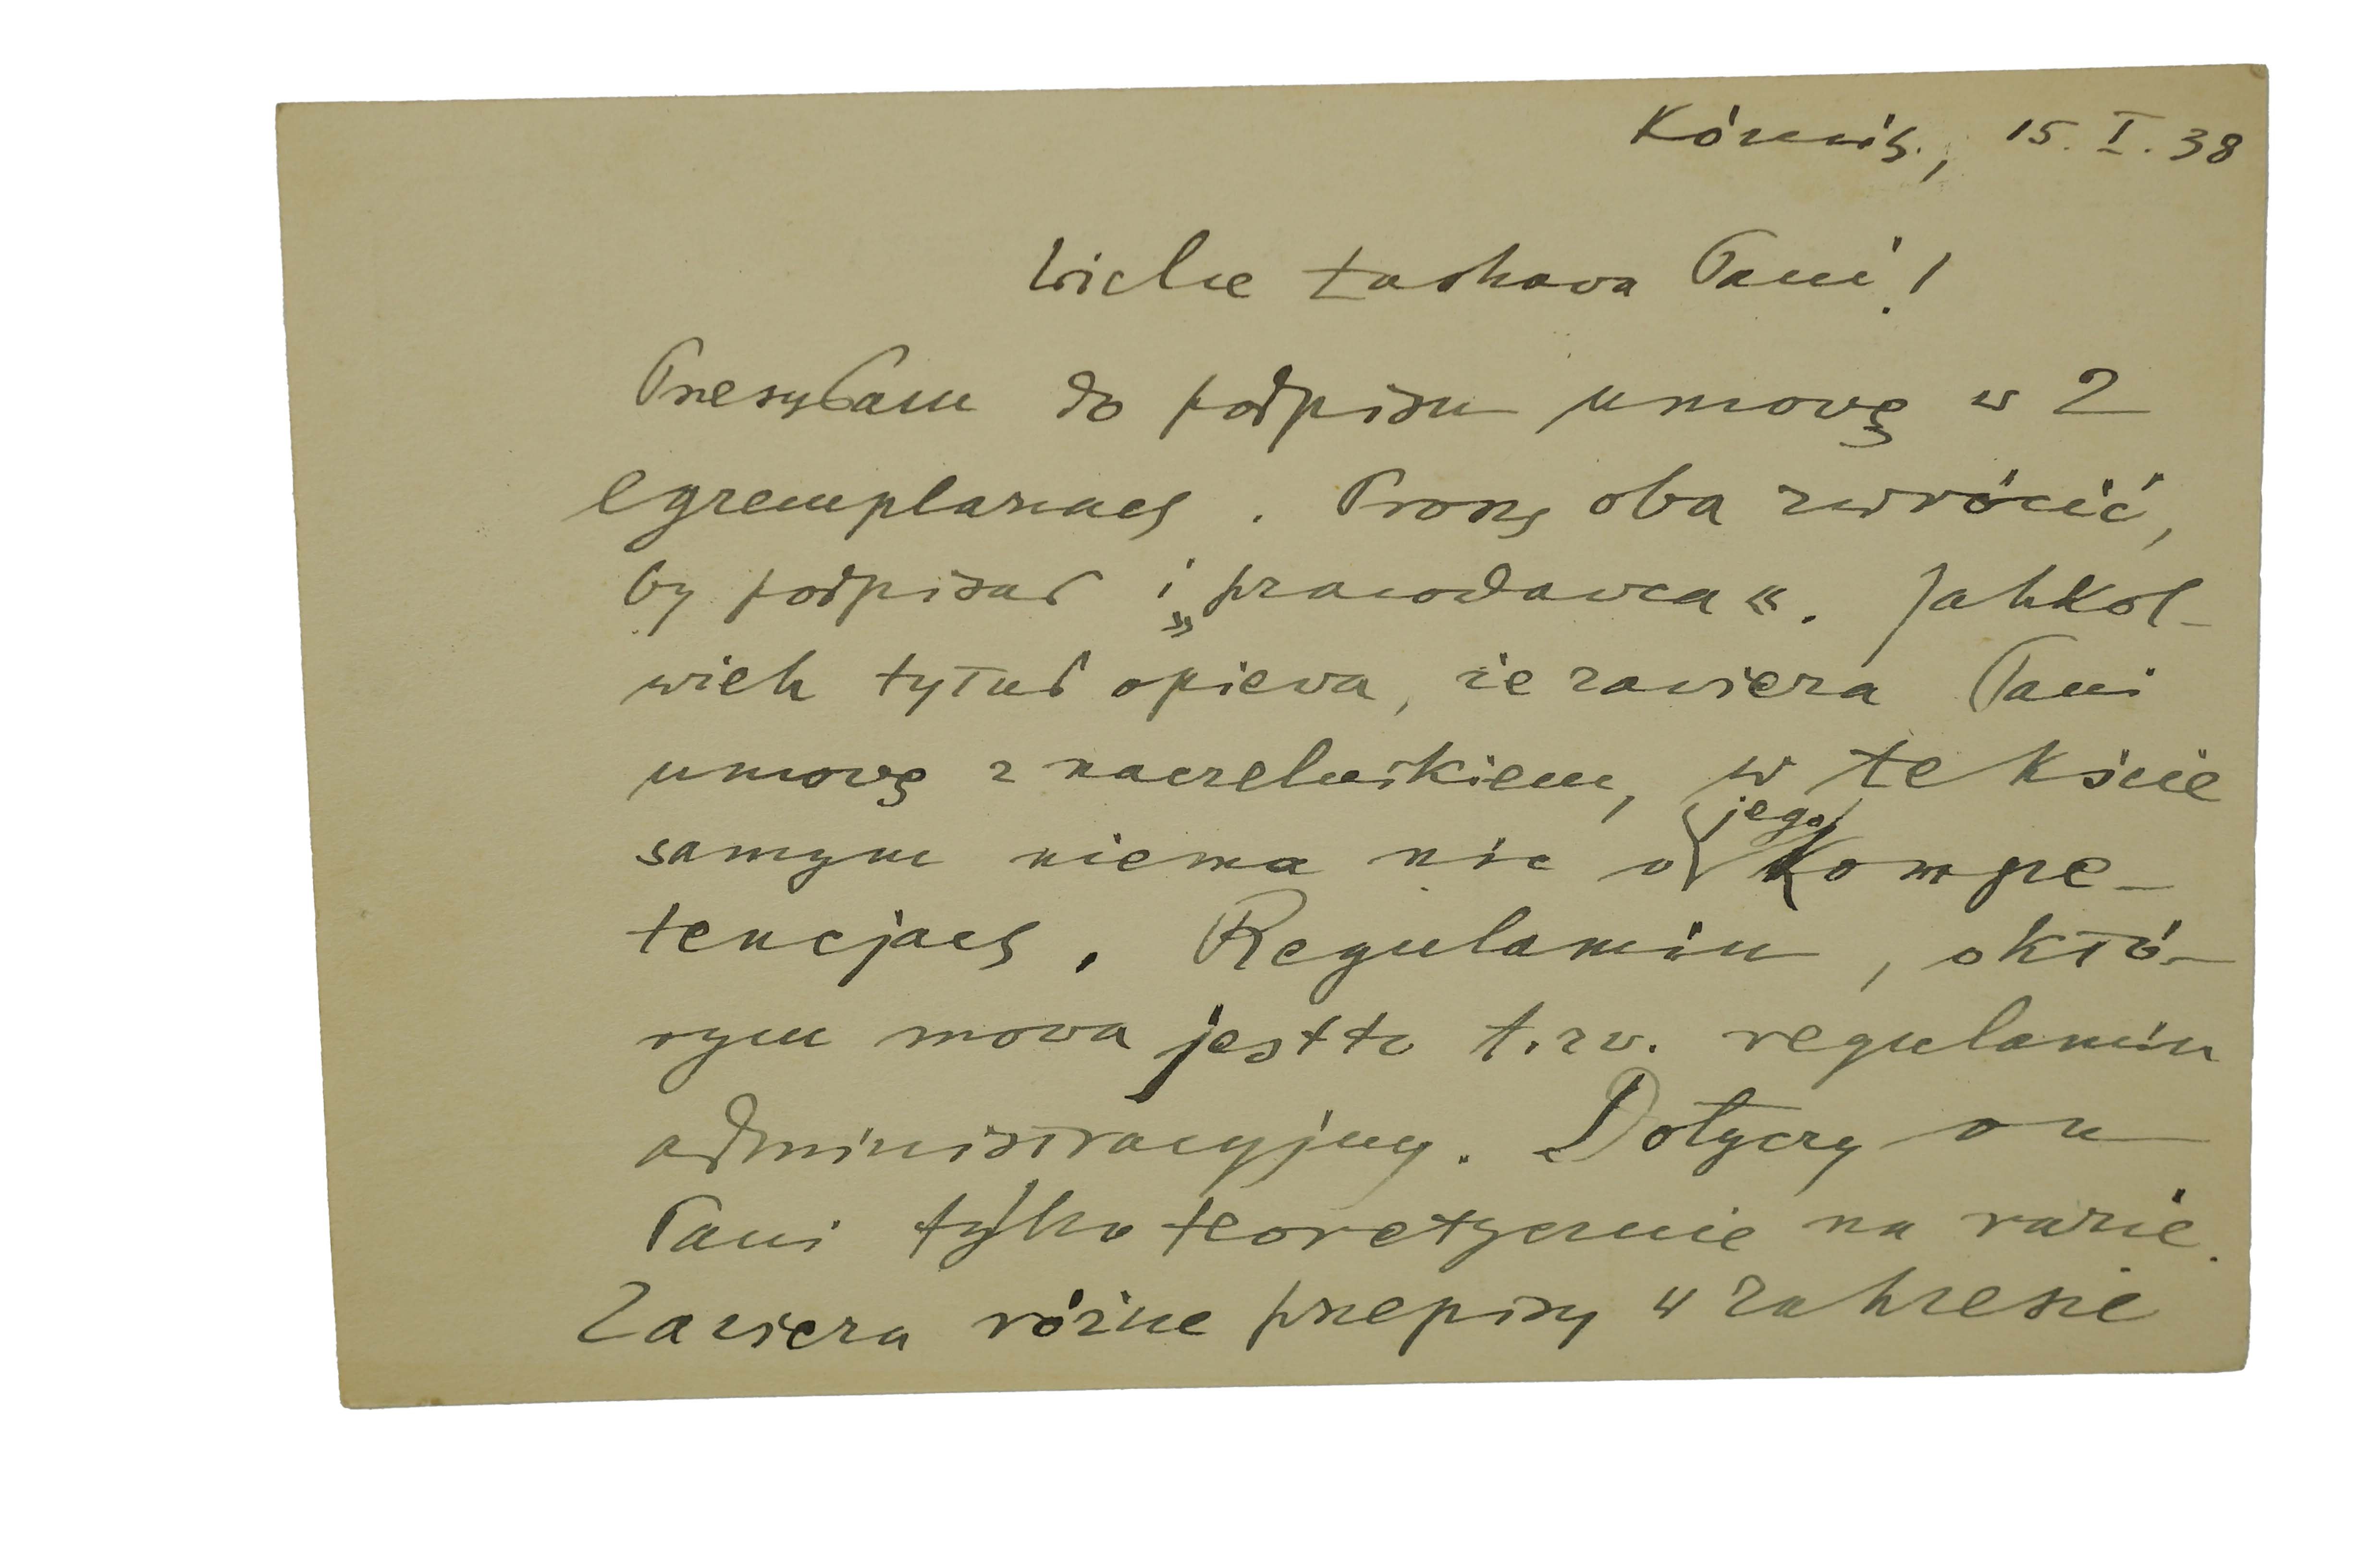 Kórnik, 15. I. 38
Wielce Łaskawa Pani!
Przesyłam do podpisu umowę w 2
egzemplarzach. Proszę oba zwrócić,
by podpisał i „pracodawca“. Jakkol-
wiek tytuł opiewa, że zawiera Pani
umowę z naczelnikiem, w tekście
samym niema nic o jego kompe-
tencjach. Regulamin, o któ-
rym mowa jest to t.zw. regulamin
administracyjny. Dotyczy on
Pani tylko teoretycznie na razie.
Zawiera różne przepisy w zakresie